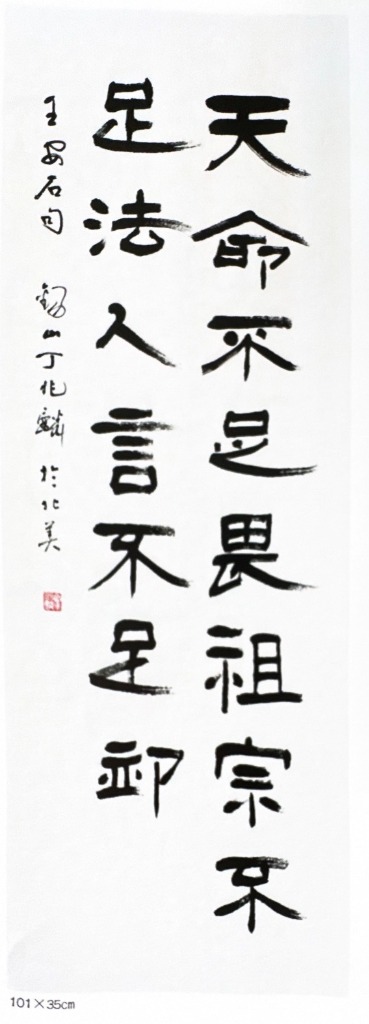 天命不足畏祖宗不
足法人言不足卹
王安石句 錫山丁兆麟 於北美
101×35cm